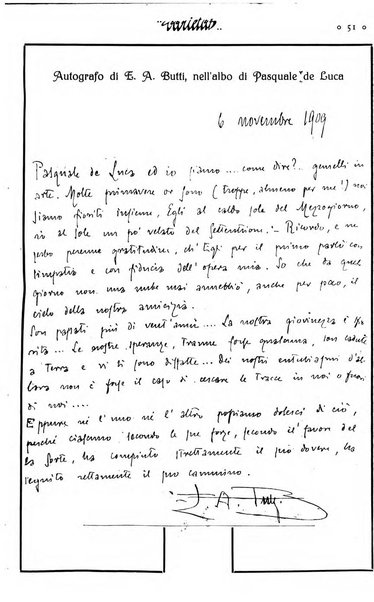 varietas
51
Autografo di E. A. Butti, nell'albo di Pasquale de Luca
6 novembre 1909
Pasquale de Luca ed io siamo... come dire? gemelli in
arte. Molte primavere or sono (troppe, almeno per me!) noi
siamo fioriti insieme, Egli al caldo sole del Mezzogiorno,
io al sole un po' velato del Settentrione. - Ricordo, e ne
serbo perenne gratitudine, ch'Egli per il primo parlò con
simpatia e con fiducia dell'opera mia. So che da quel
giorno non una nube mai annebbiò, anche per poco, il
cielo della nostra amicizia.
Son passati più di vent'anni.... La nostra giovinezza è spa
rita... Le nostre speranze, tranne forse qualcuna, son cadute
a terra e si sono disfatte... Dei nostri entusiasmi d'al
lora non è forse il caso di cercare le tracce in noi o fuori
di noi....
Eppure né l'uno né l'altro possiamo dolerci di ciò,
perché ciascuno secondo le sue forze, secondo il favore del
la sorte, ha compiuto strettamente il suo dovere, ha
seguito rettamente il suo cammino.
E. A. Butti